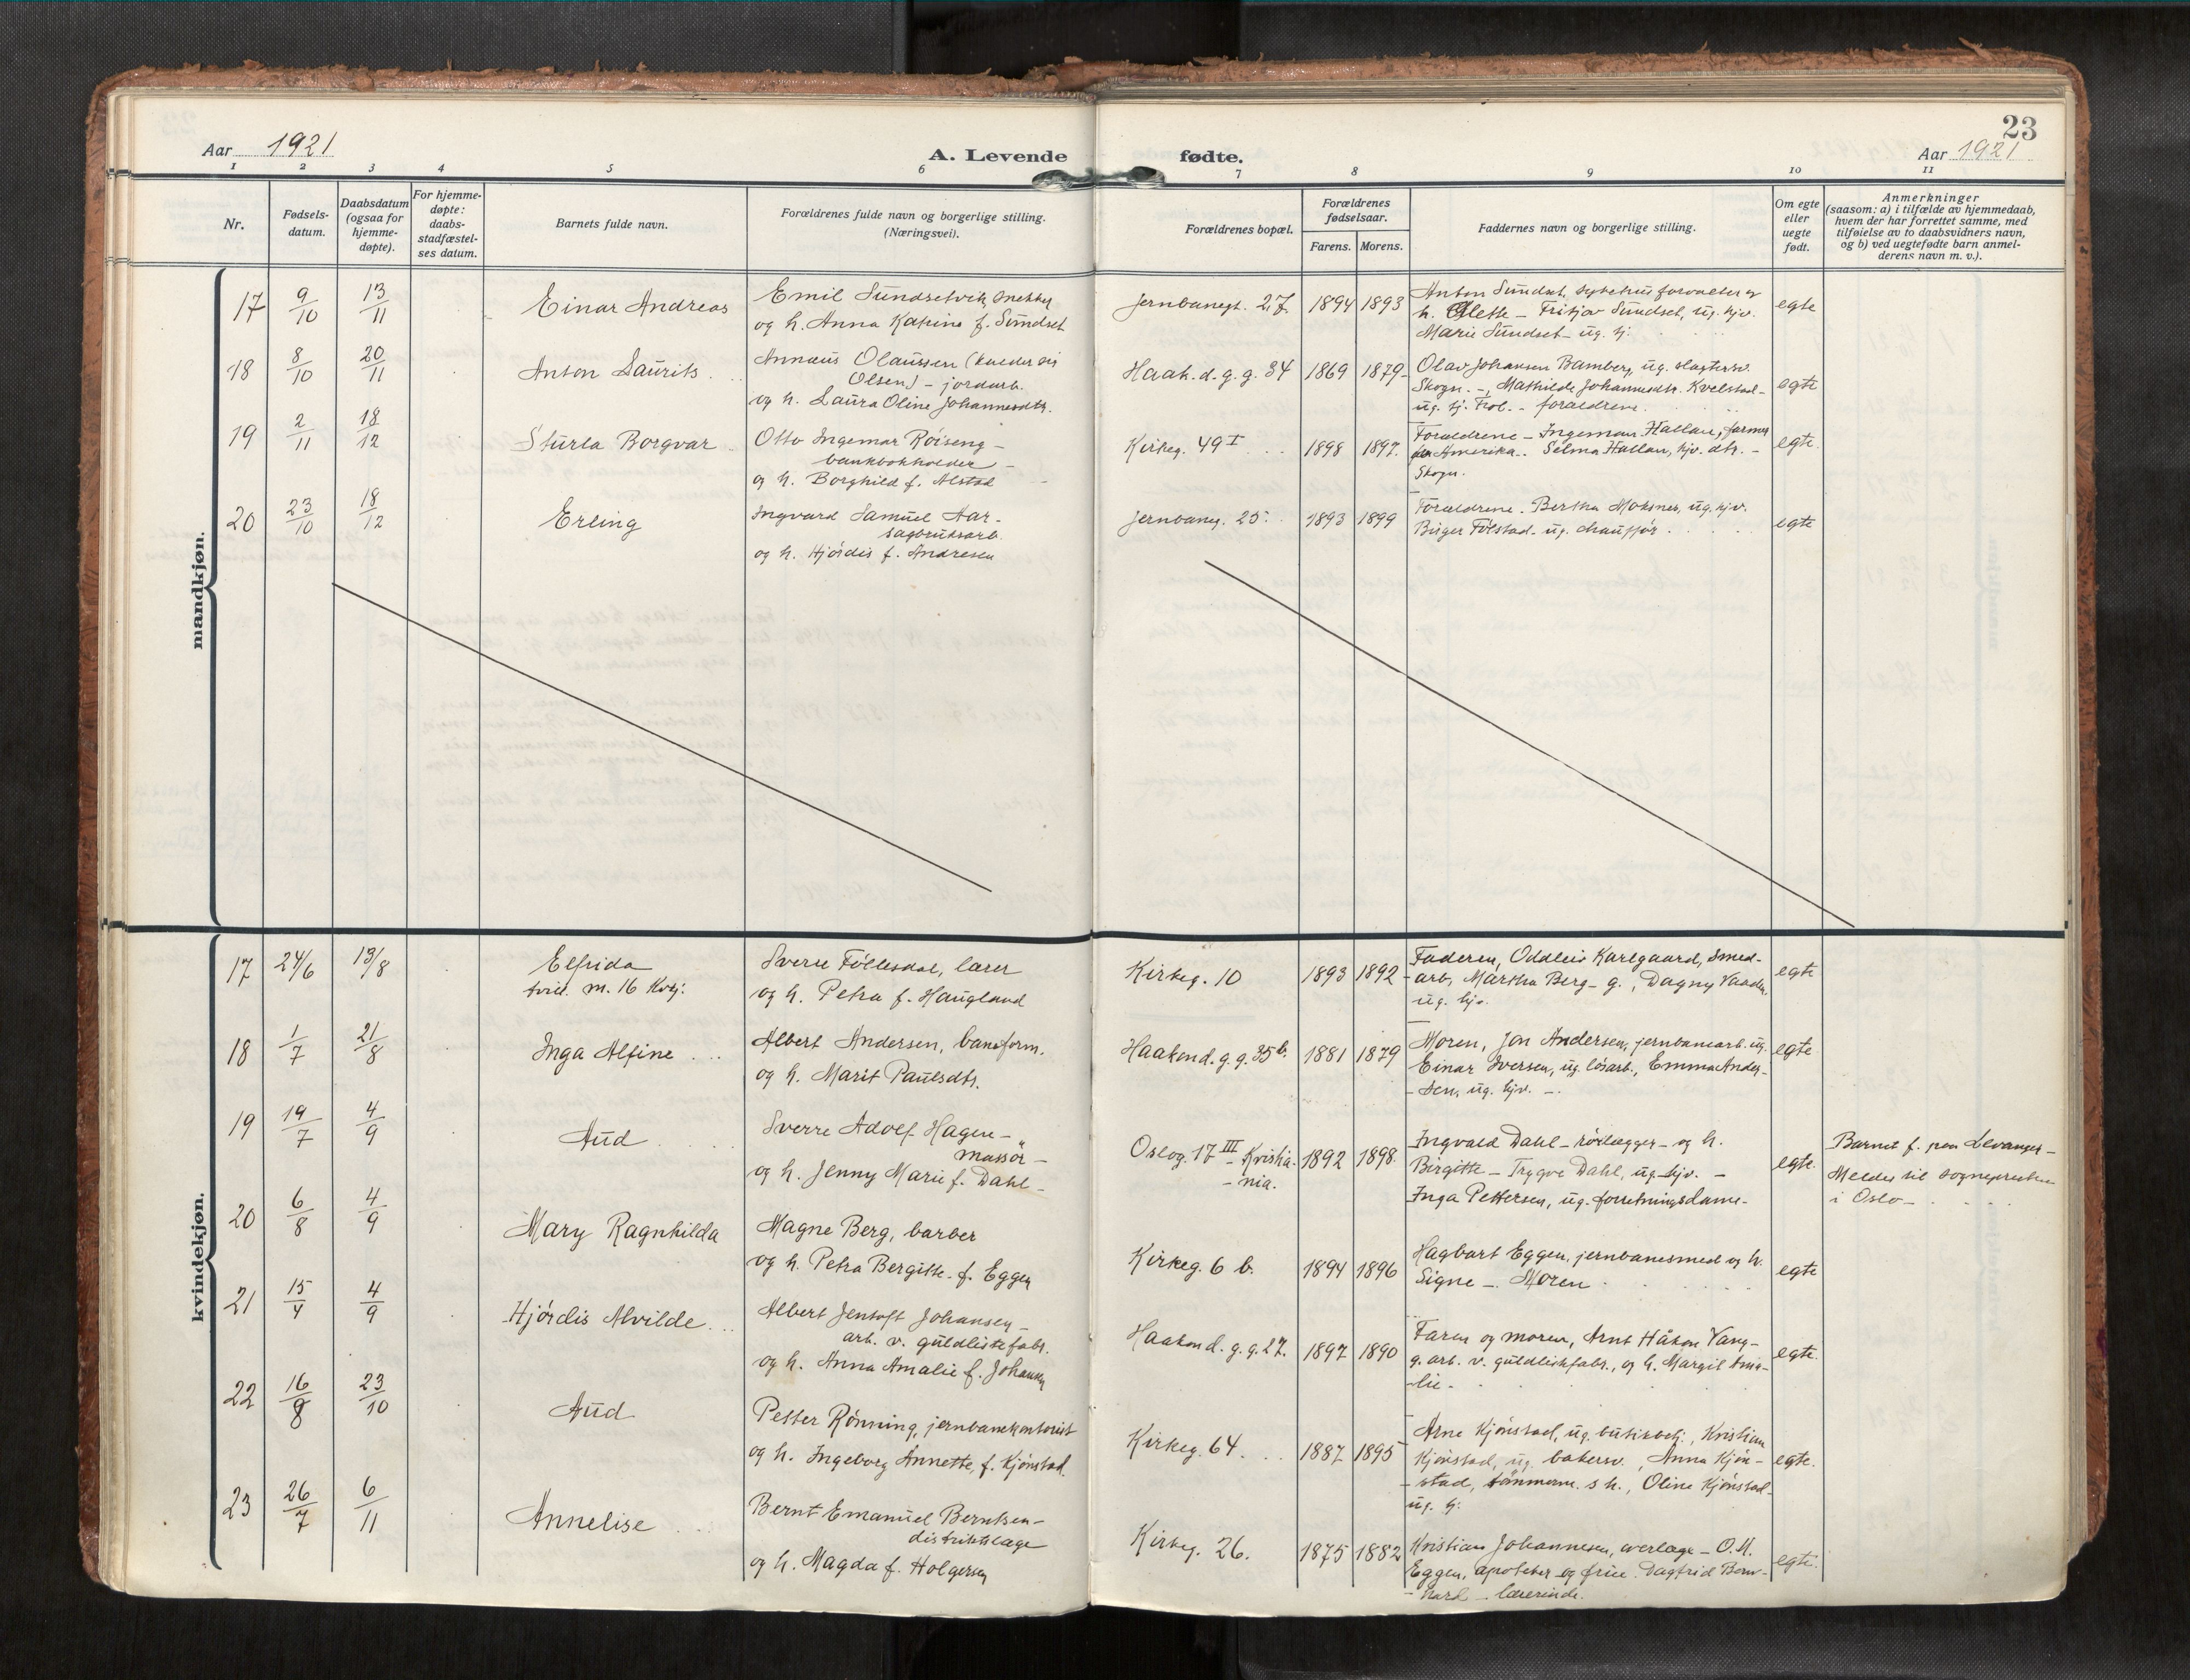 23
Aar 1921
A. Levende
fødte.
Aar 1921
1 2 3 4 5 6 7 8 9 10 11
Nr.
Fødsels-
datum.
Daabsdatum
(ogsaa for
hjemme-
døpte).
For hjemme-
døpte:
daabs-
stadfæstel-
ses datum.
Barnets fulde navn.
Forældrenes fulde navn og borgerlige stilling.
(Næringsvei).
Forældrenes bopæl.
Forældrenes
fødselsaar.
Farens. Morens.
Faddernes navn og borgerlige stilling.
Om egte
eller
uegte
født.
Anmerkninger
(saasom: a) i tilfælde av hjemmedaab,
hvem der har forrettet samme, med
tilføielse av to daabsvidners navn,
og b) ved uegtefødte barn anmel-
derens navn m. v.).
mandkjøn.
17 9/10 13/11 Einar Andreas
Emil Sundsetvik, snekker
og h. Anna Katrine f. Sundset
Jernbanegt. 27. 1894 1893
Anton Sundset, sykehusforvalter og
h. Olette - Fritjov Sundset, ug. hjv.
Marie Sundset - ug. hj.
egte
18 8/10 20/11 Anton Laurits
Annæus Olaussen (kalder sig
Olsen) - jordarb.
og h. Laura Oline Johannesdtr.
Haak. d. g. g. 34 1869 1879
Olav Johansen Bamberg, ug. slagtersv.
Skogn. -, Mathilde Johannesdtr. Kvelstad -
ug. hj. Frol. - forældrene.
egte
19 2/11 18/12 Sturla Borgvar
Otto Ingemar Röiseng -
bankbokholder -
og h. Borghild f. Alstad
Kirkeg. 49 I 1898 1897.
Forældrene - Ingeman Hallan, farmer
Amerika. Selma Hallan, hjv. dtr. -
Skogn.
egte.
20 23/10 18/12 Erling
Ingvard Samuel Aar -
sagbruksarb.
og h. Hjördis f. Andresen
Jernbaneg. 25. 1893 1899
Forældrene. Bertha Moksnes, ug. hjv.
Birger Tölstad. ug. chauffør.
egte
kvindekjøn.
17 24/6 13/8 Elfrida
tvil. m. 16 Kvkj.
Sverre Föllesdal, lærer
og h. Petra f. Haugland
Kirkeg. 10 1893 1892
Faderen, Oddleis Karlgaard, smed-
- arb, Martha Berg - g., Dagny Vaaden,
ug. hjv.
egte
18 1/7 21/8 Inga Alfine
Albert Andersen, baneform.
og h. Marit Paulsdtr.
Haakon d. g. g. 35 b. 1881 1879
Moren, Jon Andersen, jernbanearb. ug.
Einar Iversen, ug. lösarb., Emma Ander-
- sen, ug. hjv. -.
egte
19 19/7 4/9 Aud
Sverre Adolf Hagen -
massör -
og h. Jenny Marie f. Dahl -
Oslog. 17 III - Kristia-
- nia.
1892 1898.
Ingvald Dahl - rörlægger - og h.
Birgitte - Trygve Dahl, ug. hjv. -
Inga Pettersen, ug. forretningsdame -
egte.
Barnet f. paa Levanger -
Meldes til sognepresten
i Oslo -
20 6/8 4/9 Mary Ragnhilda
Magne Berg, barber
og h. Petra Bergitte f. Eggen
Kirkeg. 6 b. 1894 1896
Hagbart Eggen, jernbanesmed og h.
Signe -. Moren
egte
21 15/4 4/9 Hjördis Alvilde
Albert Jentoft Johansen -
arb. v. guldlistefabr.
og h. Anna Amalie f. Johansen
Haakon d. g. g. 27. 1897 1890
Faren og moren, Arnt Håkon Vang -
g. arb. v. guldlistfabr., og h. Margit Ama-
- lie -
egte.
22 16/8 23/10 Aud
Petter Rönning, jernbanekontorist
og h. Ingeborg Annette, f. Kjönstad.
Kirkeg. 64. 1887 1895
Arne Kjönstad, ug. butikbetj., Kristian
Kjönstad, ug. bakersv., Anna Kjön-
- stad, tömmerm. s h., Oline Kjönstad -
ug. hj.
egte.
23 26/7 6/11 Annelise
Bernt Emanuel Berntsen -
distriktslæge
og h. Magda f. Holgersen
Kirkeg. 26. 1875 1882
Kristian Johannesen, overlæge - O. M.
Eggen, apoteker og frue. Dagfrid Born-
- lærerinde.
egte.